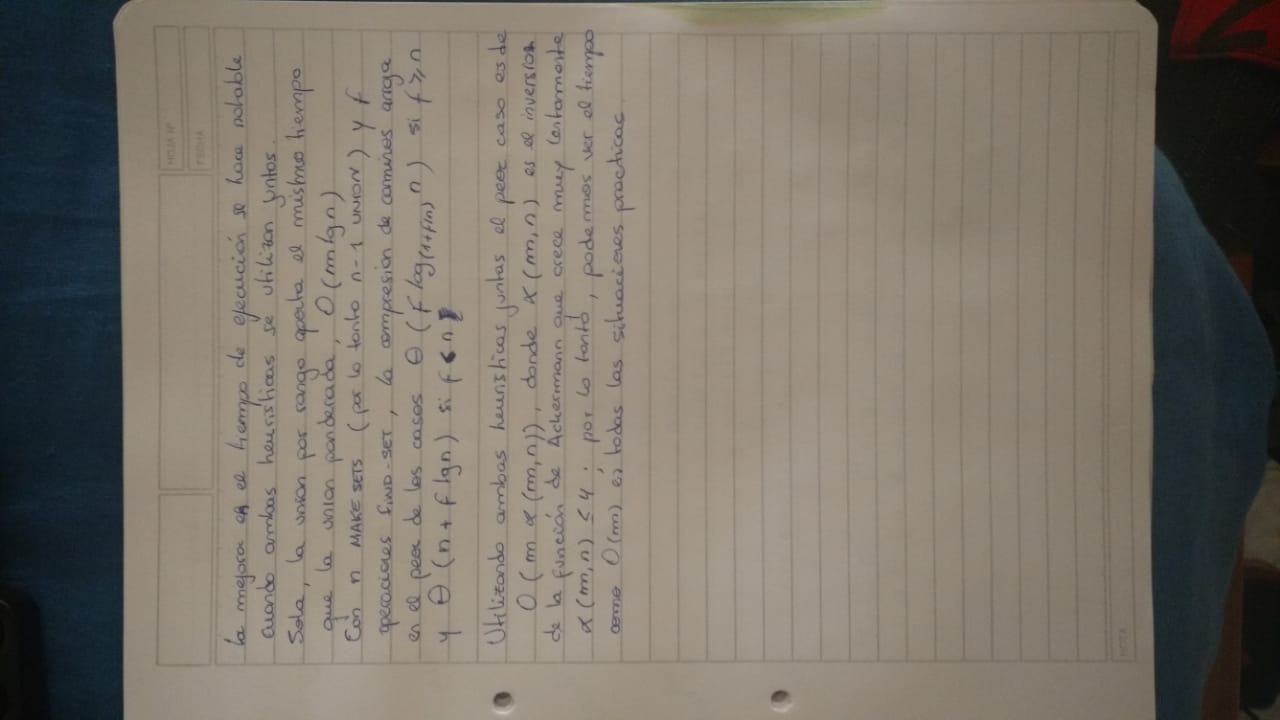 HOJA Nº
FECHA
La mejora en el tiempo de ejecución se hace notable
cuando ambas heuristicas se utilizan juntos.
Sola, la union por rango aporta el mismo tiempo
que la union ponderada, O(m lg n)
Con n MAKE SETS (por lo tanto n-1 UNION) y f
operaciones FIND-SET, la compresion de caminos arroja
en el peor de los casos Θ(f log(1+f/n) n) si f ≥ n
y Θ(n + f lg n) si f < n
Utilizando ambas heuristicas juntas el peor caso es de
O(m α(m,n)), donde α(m,n) es el inversion
de la función de Ackermann que crece muy lentamente
α(m,n) ≤ 4; por lo tanto, podemos ver el tiempo
como O(m) en todas las situaciones practicas.
NOTA